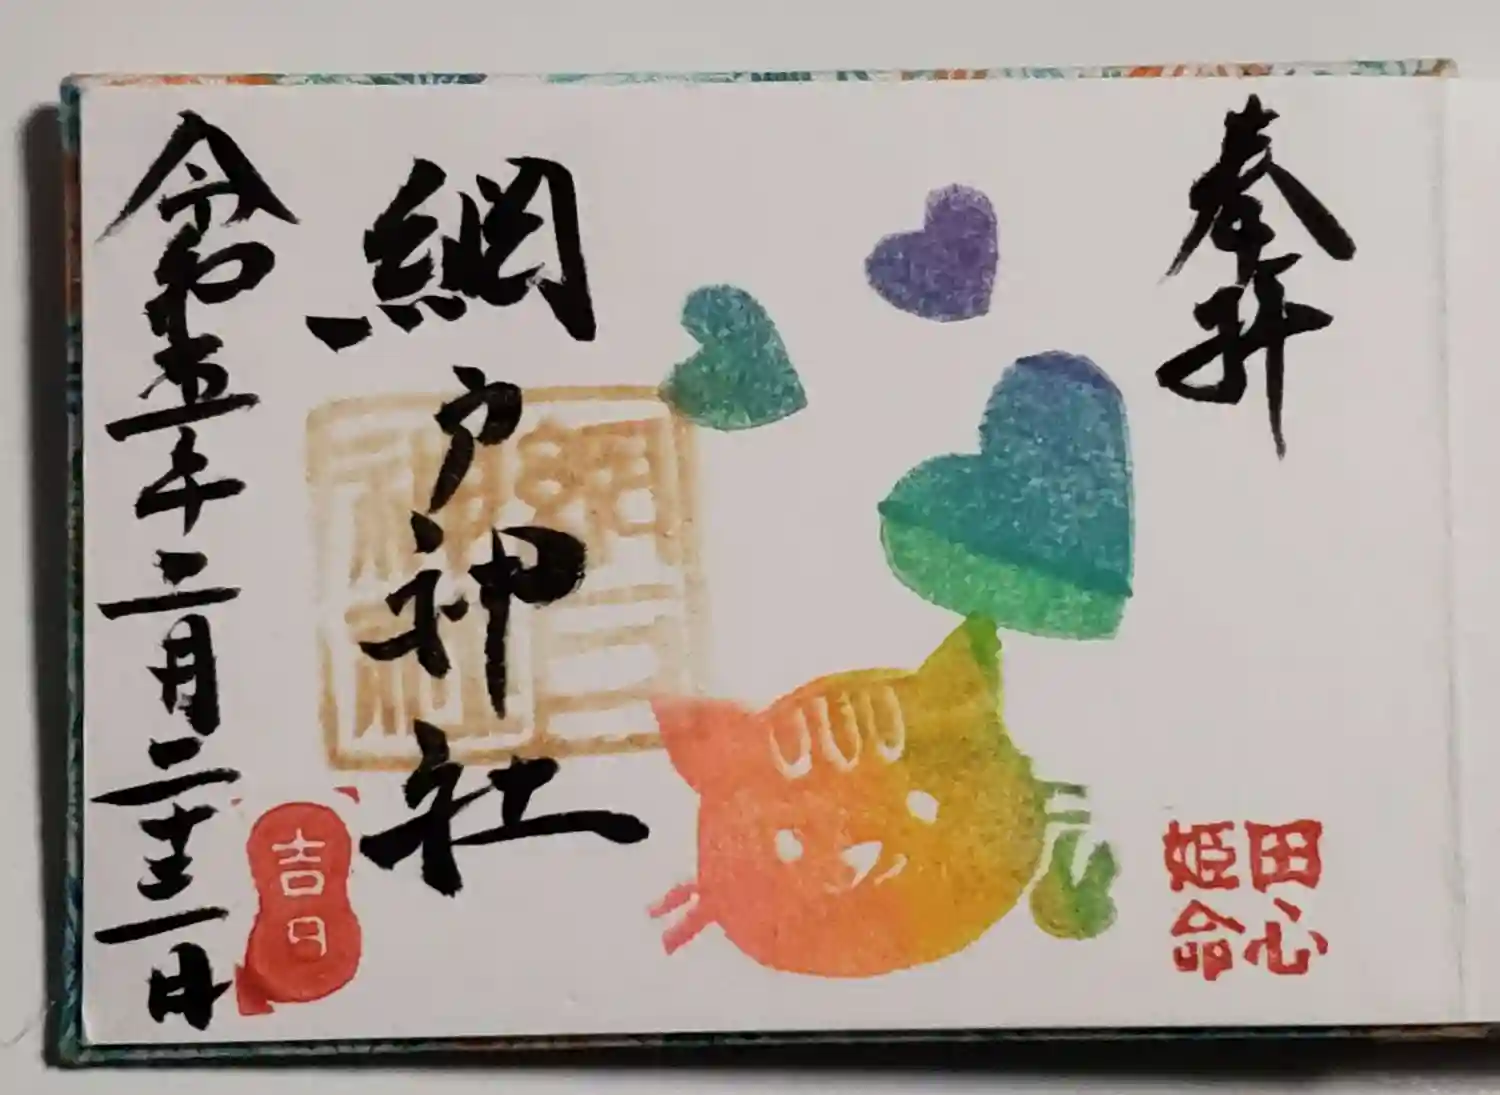 奉拝
田心
姫命
網戸神社
網戸
神社
令和五年二月二十三日
吉日